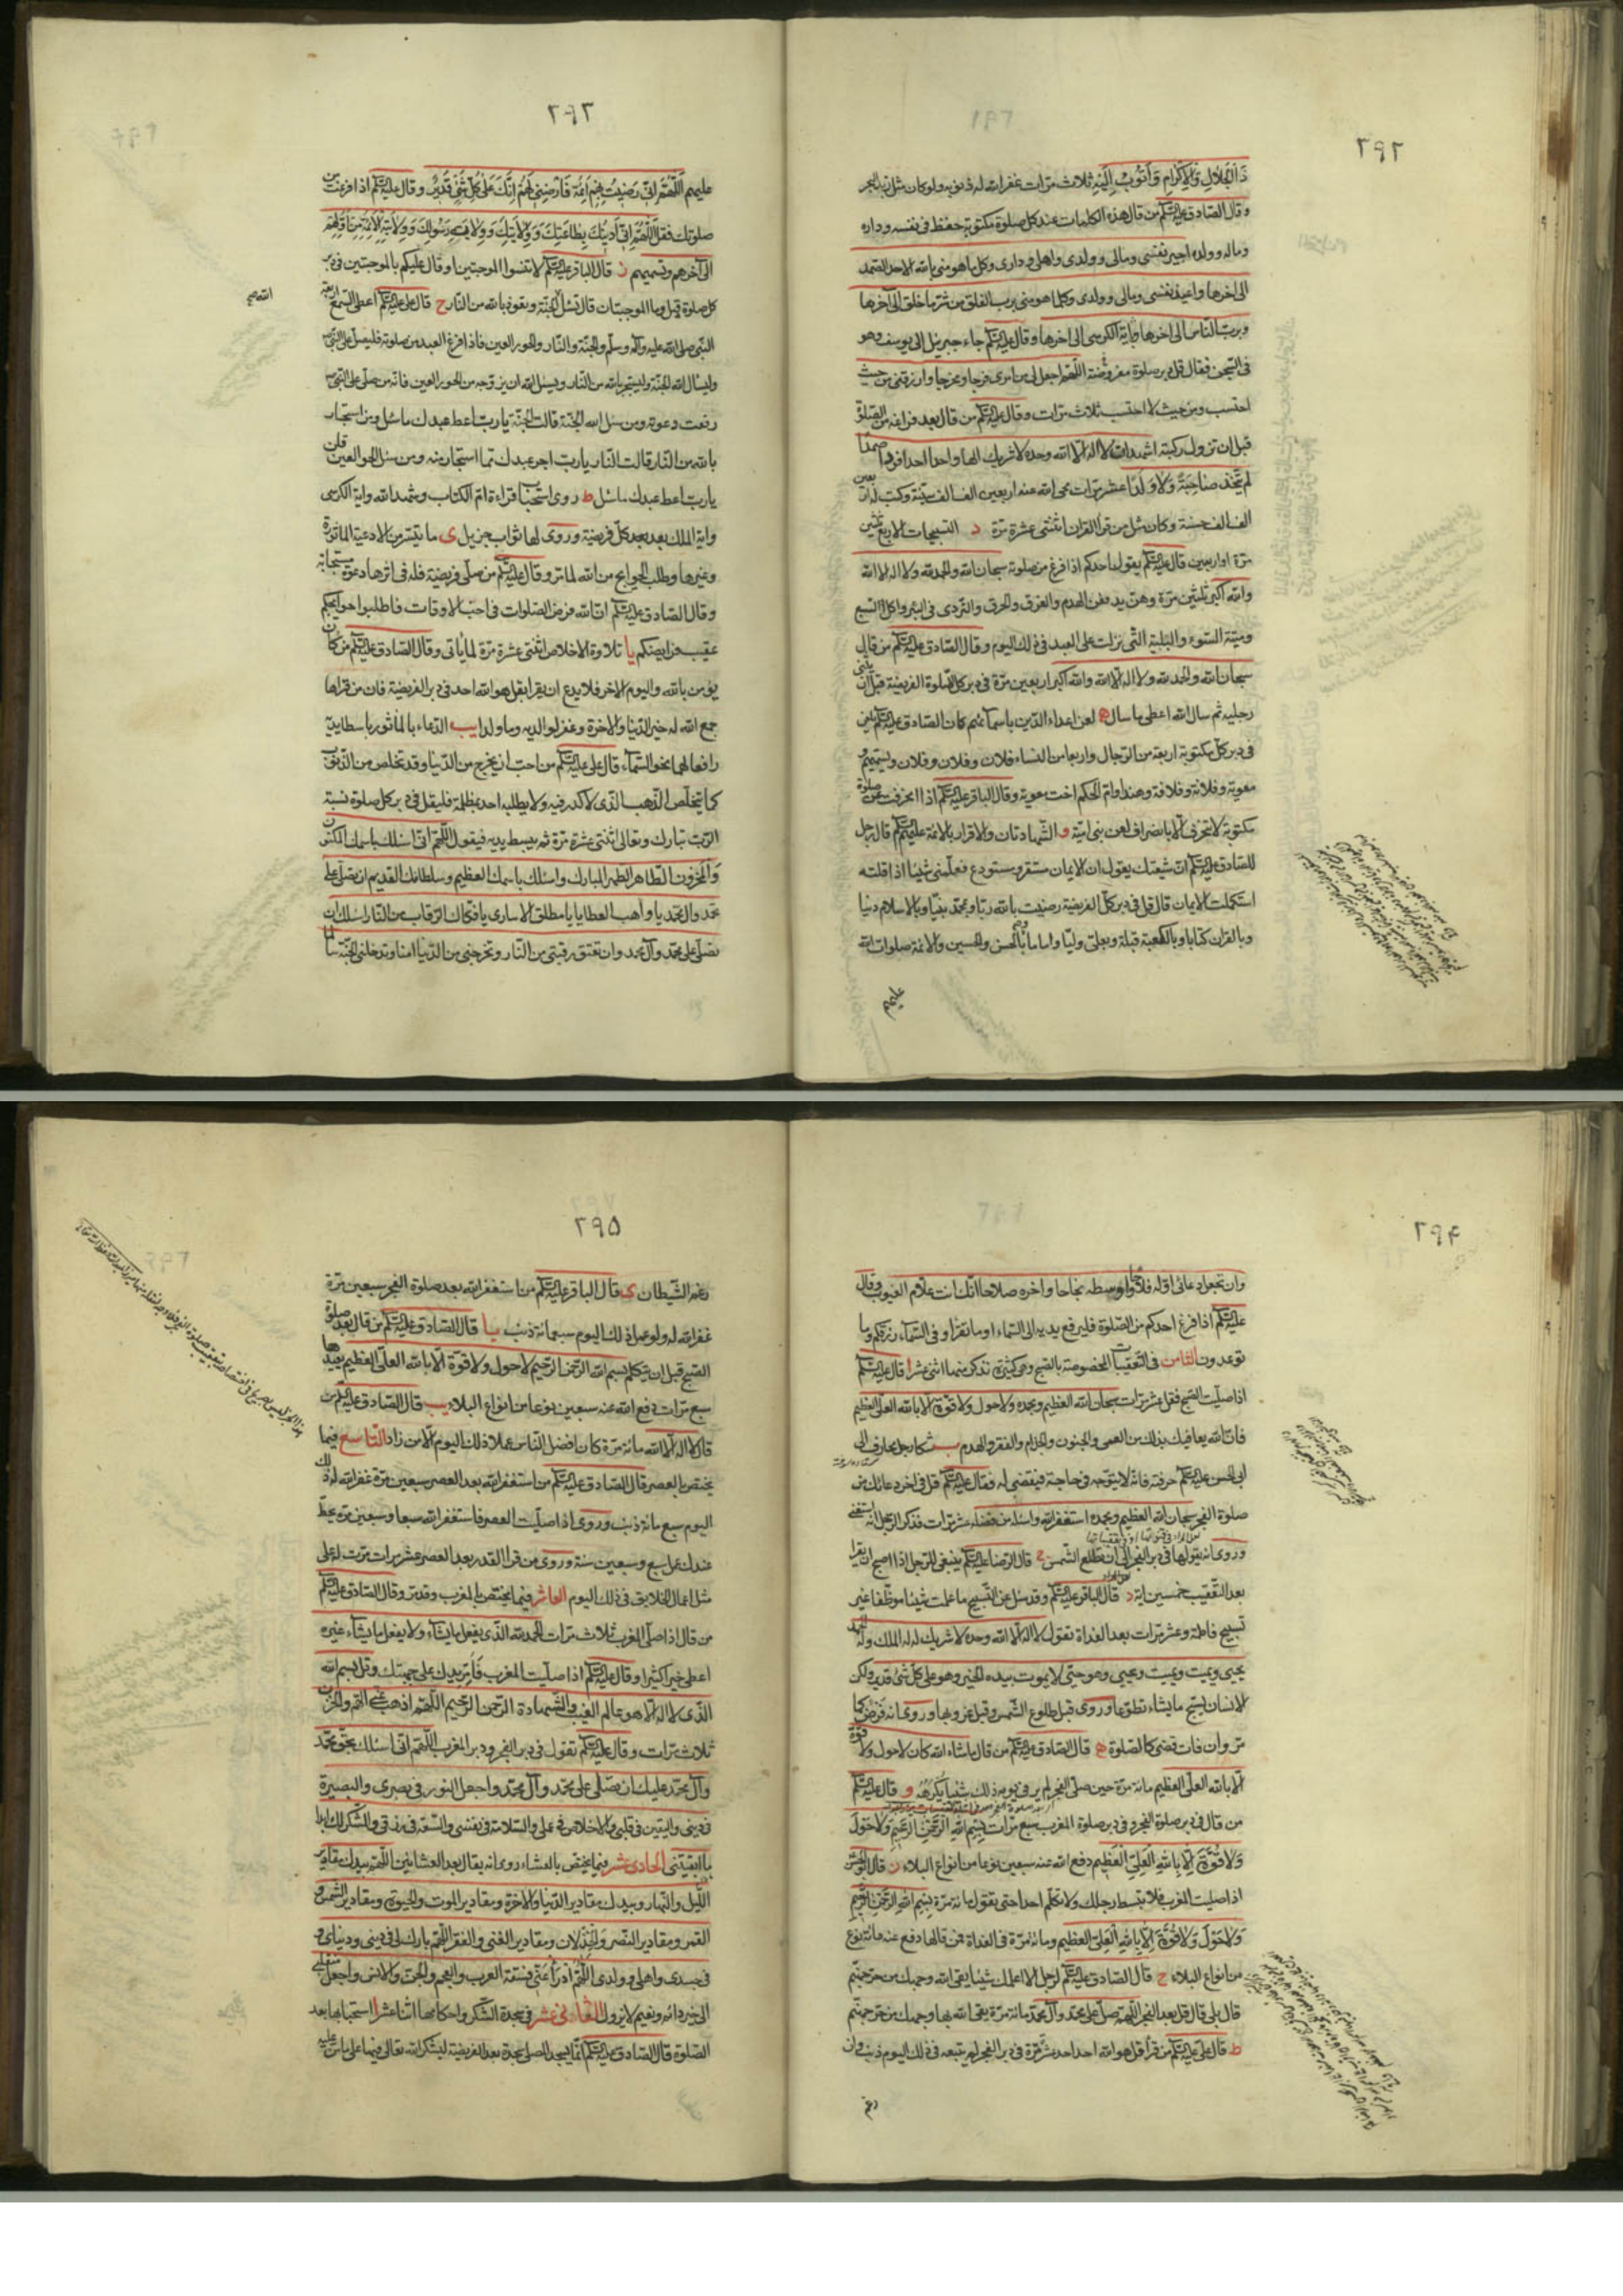 ٢٩٢
ذا الجلال والاكرام وَاَتُوبُ اِلَيْهِ ثلاث مرات غفر الله له ذنوبه ولو كان مثل زبد البحر
وقال الصادق عليه السلام من قال هذه الكلمات عند كل صلوة مكتوبة حفظ في نفسه وداره
وماله وولده اجير نفسي ومالي وولدي واهلي وداري وكل ما هو مني بالله الاحد الصمد
الى اخرها واعيذ نفسي ومالي وولدي وكلما هو مني برب الفلق من شر ما خلق الى آخرها
وبرب الناس الى اخرها وباية الكرسي الى اخرها وقال عليه السلام جاء جبرئيل الى يوسف وهو
في السجن فقال قل دبر صلوة مفروضة اللهم اجعل لي من امري فرجا ومخرجا وارزقني من حيث
احتسب ومن حيث لا احتسب ثلاث مرات وقال عليه السلام من قال بعد فراغه من الصلوة
قبل ان تزول ركبته اشهد ان لا اله الا الله وحده لا شريك له الها واحدا احدا فردا صمدا
لم يتخذ صاحِبَةً وَلا وَلَدًا عشر مرات محى الله عنه اربعين الف الف سيئة وكتب له اربعين
الف الف حسنة وكان مثل من قرأ القرآن اثنتي عشرة مرة د التسبيحات الاربع ثلثين
مرة او اربعين قال عليه السلام يقول احدكم اذا فرغ من صلوته سبحان الله والحمد لله ولا اله الا الله
والله اكبر ثلثين مرة وهن يدفعن الهدم والغرق والحرق والتردى في البئر واكل السبع
وميتة السوء والبلية التي نزلت على العبد في ذلك اليوم وقال الصادق عليه السلام من قال
سبحان الله والحمد لله ولا اله الا الله والله اكبر اربعين مرة في دبر كل صلوة الفريضة قبل ان يثنى
رجليه ثم سال الله اعطى ما سال ه لعن اعداء الدين باسمائهم كان الصادق عليه السلام يلعن
في دبر كل مكتوبة اربعة من الرجال واربعا من النساء فلان وفلان وفلان ويسميهم و
معوية وفلانة وفلانة وهندا وام الحكم اخت معوية وقال الباقر عليه السلام اذا انحرفت عن صلوة
مكتوبة لا تنحرف الا بانصراف لعن بني امية و الشهادتان والاقرار بالائمة عليهم السلام قال رجل
للصادق عليه السلام ان شيعتك يقول ان الايمان مستقر ومستودع فعلمني شيئا اذا قلته
استكملت الايمان قال قل في دبر كل فريضة رضيت بالله ربا وبمحمد نبيا وبالاسلام دينا
وبالقران كتابا وبالكعبة قبلة وبعلي وليا واماما وبالحسن والحسين والائمة صلوات الله
عليهم
٢٩٣
عليهم اَللّٰهُمَّ اِنِّي رَضِيتُ بِهِمْ اَئِمَّةً فَارْضِنِي لَهُمْ اِنَّكَ عَلٰى كُلِّ شَيْءٍ قَدِيرٌ وقال عليه السلام اذا فرغت من
صلوتك فقل اَللّٰهُمَّ اِنّي اَدِينُكَ بِطاعَتِكَ وَوِلايَتِكَ وَوِلايَةِ رَسُولِكَ وَوِلايَةِ الاَئِمَّةِ مِن اَوَّلِهِمْ
الى آخرهم وتسميهم ز قال الباقر عليه السلام لا تنسوا الموجبتين او قال عليكم بالموجبتين في دبر
كل صلوة قيل وما الموجبتان قال تسئل الجنة وتعوذ بالله من النار ح قال على عليه السلام اعطى السمع اربعة
النبي صلى الله عليه وآله وسلم والجنة والنار والحور العين فاذا فرغ العبد من صلوته فليصل على النبي ص
وليسأل الله الجنة وليستجر بالله من النار ويسئل الله ان يزوجه من الحور العين فانه من صلى على النبي ص
رفعت دعوته ومن سئل الله الجنة قالت الجنة يا رب اعط عبدك ما سئل ومن استجار
بالله من النار قالت النار يا رب اجر عبدك مما استجار منه ومن سئل الحور العين قلن
يا رب اعط عبدك ما سئل ط روى استحباب قراءة ام الكتاب وشهد الله واية الكرسي
واية الملك بعد كل فريضة وروى لها ثواب جزيل ى ما تيسر من الادعية الماثورة
وغيرها وطلب الحوايج من الله لما مر وقال عليه السلام من صلى فريضة فله في اثرها دعوة مستجابة
وقال الصادق عليه السلام ان الله فرض الصلوات في احب الاوقات فاطلبوا حوايجكم
عقيب فرايضكم يا تلاوة الاخلاص اثنتي عشرة مرة لما ياتي وقال الصادق عليه السلام من كان
يؤمن بالله واليوم الاخر فلا يدع ان يقرأ بقل هو الله احد في دبر الفريضة فان من قراها
جمع الله له خير الدنيا والاخرة وغفر لوالديه وما ولد يب الدعاء بالماثور باسطا يديه
رافعا لهما نحو السماء قال على عليه السلام من احب ان يخرج من الدنيا وقد تخلص من الذنوب
كما يتخلص الذهب الذي لا كدر فيه ولا يطلبه احد بمظلمة فليقل في دبر كل صلوة نسبة
الرب تبارك وتعالى اثنتى عشرة مرة ثم يبسط يديه فيقول اللهم اني اسئلك باسمك المكنون
وَالمخزون الطاهر الطهر المبارك واسئلك باسمك العظيم وسلطانك القديم ان تصلى على
محمد وال محمد يا واهب العطايا يا مطلق الاسارى يا فكاك الرقاب من النار اسئلك ان
تصلى على محمد وآل محمد وان تعتق رقبتي من النار وتخرجني من الدنيا امنا وتدخلني الجنة سالما
٢٩۴
وان تجعل دعائي اوله فلاحا واوسطه نجاحا واخره صلاحا انك انت علام الغيوب وقال
عليه السلام اذا فرغ احدكم من الصلوة فليرفع يديه الى السماء او ما تقرأ وفي السماء رزقكم وما
توعدون الثامن في التعقيبات المخصوصة بالصبح وهي كثيرة نذكر منها اثنى عشر ا قال عليه السلام
اذا صليت الصبح فقل عشر مرات سبحان الله العظيم وبحمده ولا حول ولا قوة الا بالله العلي العظيم
فان الله يعافيك بذلك من العمى والجنون والجذام والفقر والهدم ب شكا رجل يحارف الى
ابي الحسن عليه السلام حرفته فانه لا يتوجه في حاجة فيقضى له فقال عليه السلام قل في اخر دعائك من
صلوة الفجر سبحان الله العظيم وبحمده استغفر الله واسئله من فضله عشر مرات فذكر الرجل انه استغنى
وروى انه يقولها في دبر الفجر الى ان تطلع الشمس ج قال الرضا عليه السلام ينبغي للرجل اذا اصبح ان يقرا
بعد التعقيب خمسين اية د قال الباقر عليه السلام وقد سئل عن التسبيح ما علمت شيئا موظفا غير
تسبيح فاطمة وعشر مرات بعد الغداة تقول لا اله الا الله وحده لا شريك له له الملك وله الحمد
يحيى ويميت ويميت ويحيى وهو حي لا يموت بيده الخير وهو على كل شئ قدير ولكن
الانسان يسبح ما يشاء تطوعا وروى قبل طلوع الشمس وقبل غروبها وروى انه فرض كما
مر وان فات قضى كالصلوة ه قال الصادق عليه السلام من قال ما شاء الله كان لا حول ولا قوة
الا بالله العلي العظيم مائة مرة حين صلى الفجر لم ير في يومه ذلك شَيْئاً يَكْرَهُهُ و قال عليه السلام
من قال في دبر صلوة الفجر و في دبر صلوة المغرب سبع مرات بِسْمِ اللهِ الرَّحْمٰنِ الرَّحِيمِ وَلا حَوْلَ
وَلا قُوَّةَ اِلّا بِاللهِ الْعَلِيِّ العَظِيم دفع الله عنه سبعين نوعا من انواع البلاء ز قال ابو الحسن
اذا صليت المغرب فلا تبسط رجلك ولا تكلم احدا حتى تقول مائة مرة بِسْمِ اللهِ الرَّحْمٰنِ الرَّحِيمِ
وَلا حَوْلَ وَلا قُوَّةَ اِلّا بِاللهِ الْعَلِيِّ العظيم ومائة مرة في الغداة فمن قالها دفع عنه مائة نوع
من انواع البلاء ح قال الصادق عليه السلام لرجل الا اعلمك شيئا يقي الله وجهك من حر جهنم
قال بلى قال قل بعد الفجر اللهم صل على محمد وآل محمد مائة مرة يقي الله بها وجهك من حر جهنم
ط قال على عليه السلام من قرأ قل هو الله احد احد عشرة مرة في دبر الفجر لم يتبعه في ذلك اليوم ذنب وان
رغم
٢٩۵
رغم الشيطان ى قال الباقر عليه السلام من استغفر الله بعد صلوة الفجر سبعين مرة
غفر الله له ولو عمل ذلك اليوم سبعمائة ذنب يا قال الصادق عليه السلام من قال بعد صلوة
الصبح قبل ان يتكلم بسم الله الرحمن الرحيم لا حول ولا قوة الا بالله العلي العظيم يعيدها
سبع مرات دفع الله عنه سبعين نوعا من انواع البلاء يب قال الصادق عليه السلام من
قال لا اله الا الله مائة مرة كان افضل الناس عملا ذلك اليوم الا من زاد التاسع فيما
يختص بالعصر قال الصادق عليه السلام من استغفر الله بعد العصر سبعين مرة غفر الله له ذلك
اليوم سبع مائة ذنب وروى اذا صليت العصر فاستغفر الله سبعا وسبعين مرة يحط
عنك عمل سبع وسبعين سنة وروى من قرأ القدر بعد العصر عشر مرات مرت له على
مثل اعمال الخلايق في ذلك اليوم العاشر فيما يختص بالمغرب وقد مر وقال الصادق عليه السلام
من قال اذا صلى المغرب ثلاث مرات الحمد لله الذي يفعل ما يشاء ولا يفعل ما يشاء غيره
اعطى خيرا كثيرا وقال عليه السلام اذا صليت المغرب فامر يدك على جبهتك وقل بسم الله
الذى لا اله الا هو عالم الغيب والشهادة الرحمن الرحيم اللهم اذهب عني الهم والحزن
ثلاث مرات وقال عليه السلام تقول في دبر الفجر ودبر المغرب اللهم اني اسئلك بحق محمد
وآل محمد عليك ان تصلى على محمد وآل محمد واجعل النور في بصري والبصيرة
في ديني واليقين في قلبي والاخلاص في عملي والسلامة في نفسي والسعة في رزقي والشكر لك ابدا
ما ابقيتني الحادى عشر فيما يختص بالعشاء روى انه يقال بعد العشائين اللهم بيدك مقادير
الليل والنهار وبيدك مقادير الدنيا والاخرة ومقادير الموت والحيوة ومقادير الشمس و
القمر ومقادير النصر والخذلان ومقادير الغنى والفقر اللهم بارك لي في ديني ودنياي و
في جسدي واهلي وولدي اللهم ادرأ عني فسقة العرب والعجم والجن والانس واجعل منقلبي
الى خير دائم ونعيم لا يزول الثاني عشر في سجدة الشكر واحكامها اثنا عشر ا استحبابها بعد
الصلوة قال الصادق عليه السلام انما يسجد المصلي سجدة بعد الفريضة ليشكر الله تعالى فيها على ما من عليه